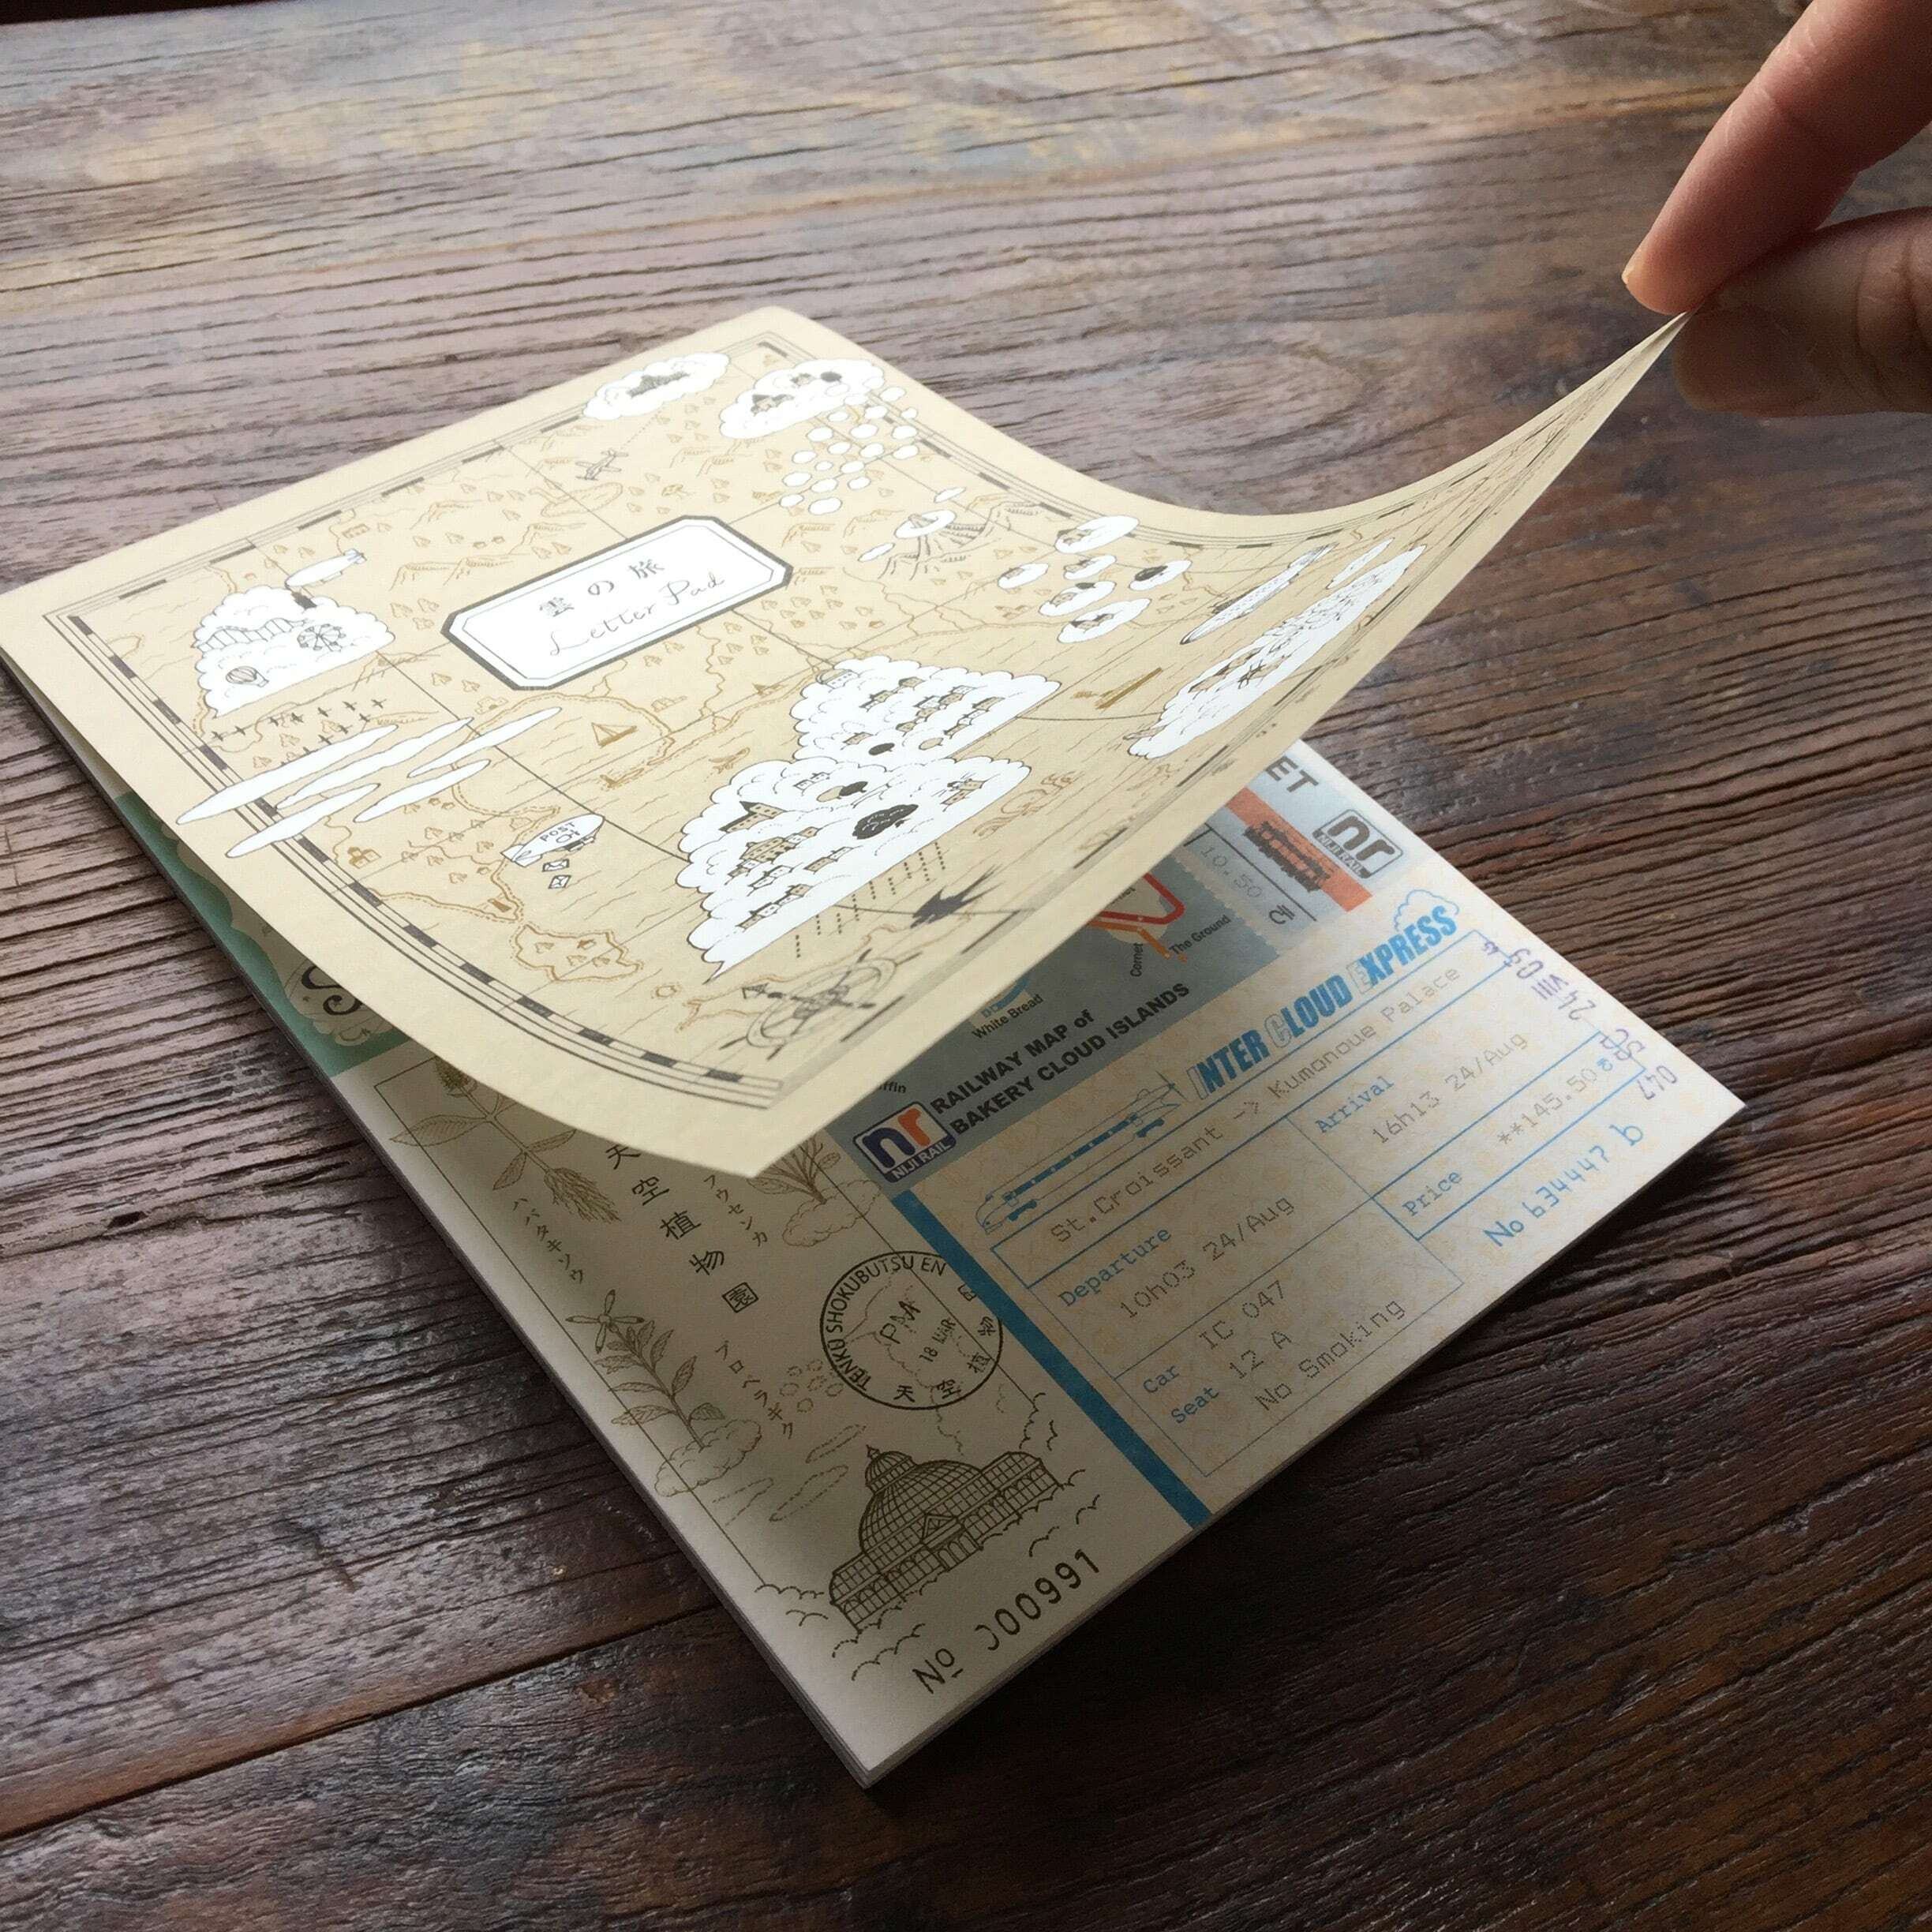 雲の旅
Letter Pad
POST
ET
nr
NIJI RAIL
10.50
The Ground
White Bread
nr
NIJI RAIL
RAILWAY MAP of
BAKERY CLOUD ISLANDS
INTER CLOUD EXPRESS
St.Croissant -> Kumonoue Palace
Departure
10h03 24/Aug
Arrival
16h13 24/Aug
Car IC 047
Seat 12 A
No Smoking
Price **145.50
No 634447 b
24 VIII 09
047
天空植物園
ハバタキソウ
フウセンカ
プロペラギク
TENKU SHOKUBUTSU EN
PM
18 MAR
天空植物園
No 000991